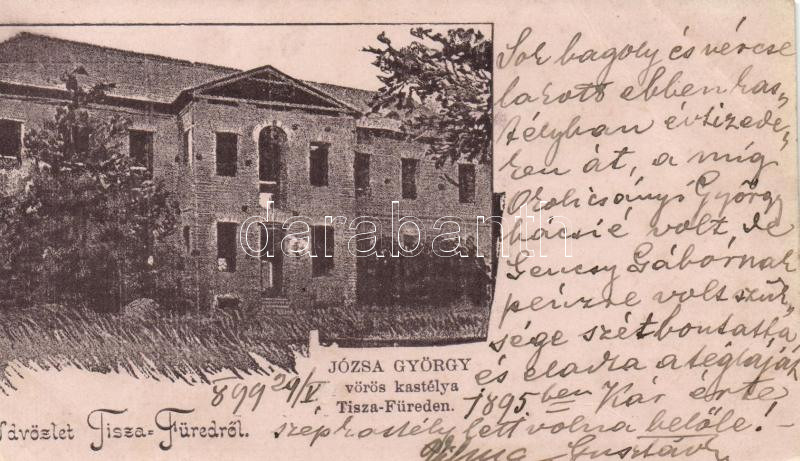 Sok bagoly és vércse
lakott ebben kas-
télyban évtizede-
ken át, a míg
Okolicsányi György
bácsié volt de
Gencsy Gábornak
pénzre volt szük-
sége szétbontatta
és eladta a tégláját
1895ben Kár érte
szép kastély lett volna belőle! -
Gusztáv
darabanth.com
JÓZSA GYÖRGY
vörös kastélya
Tisza-Füreden.
899 29/V
Üdvözlet Tisza-Füredről.